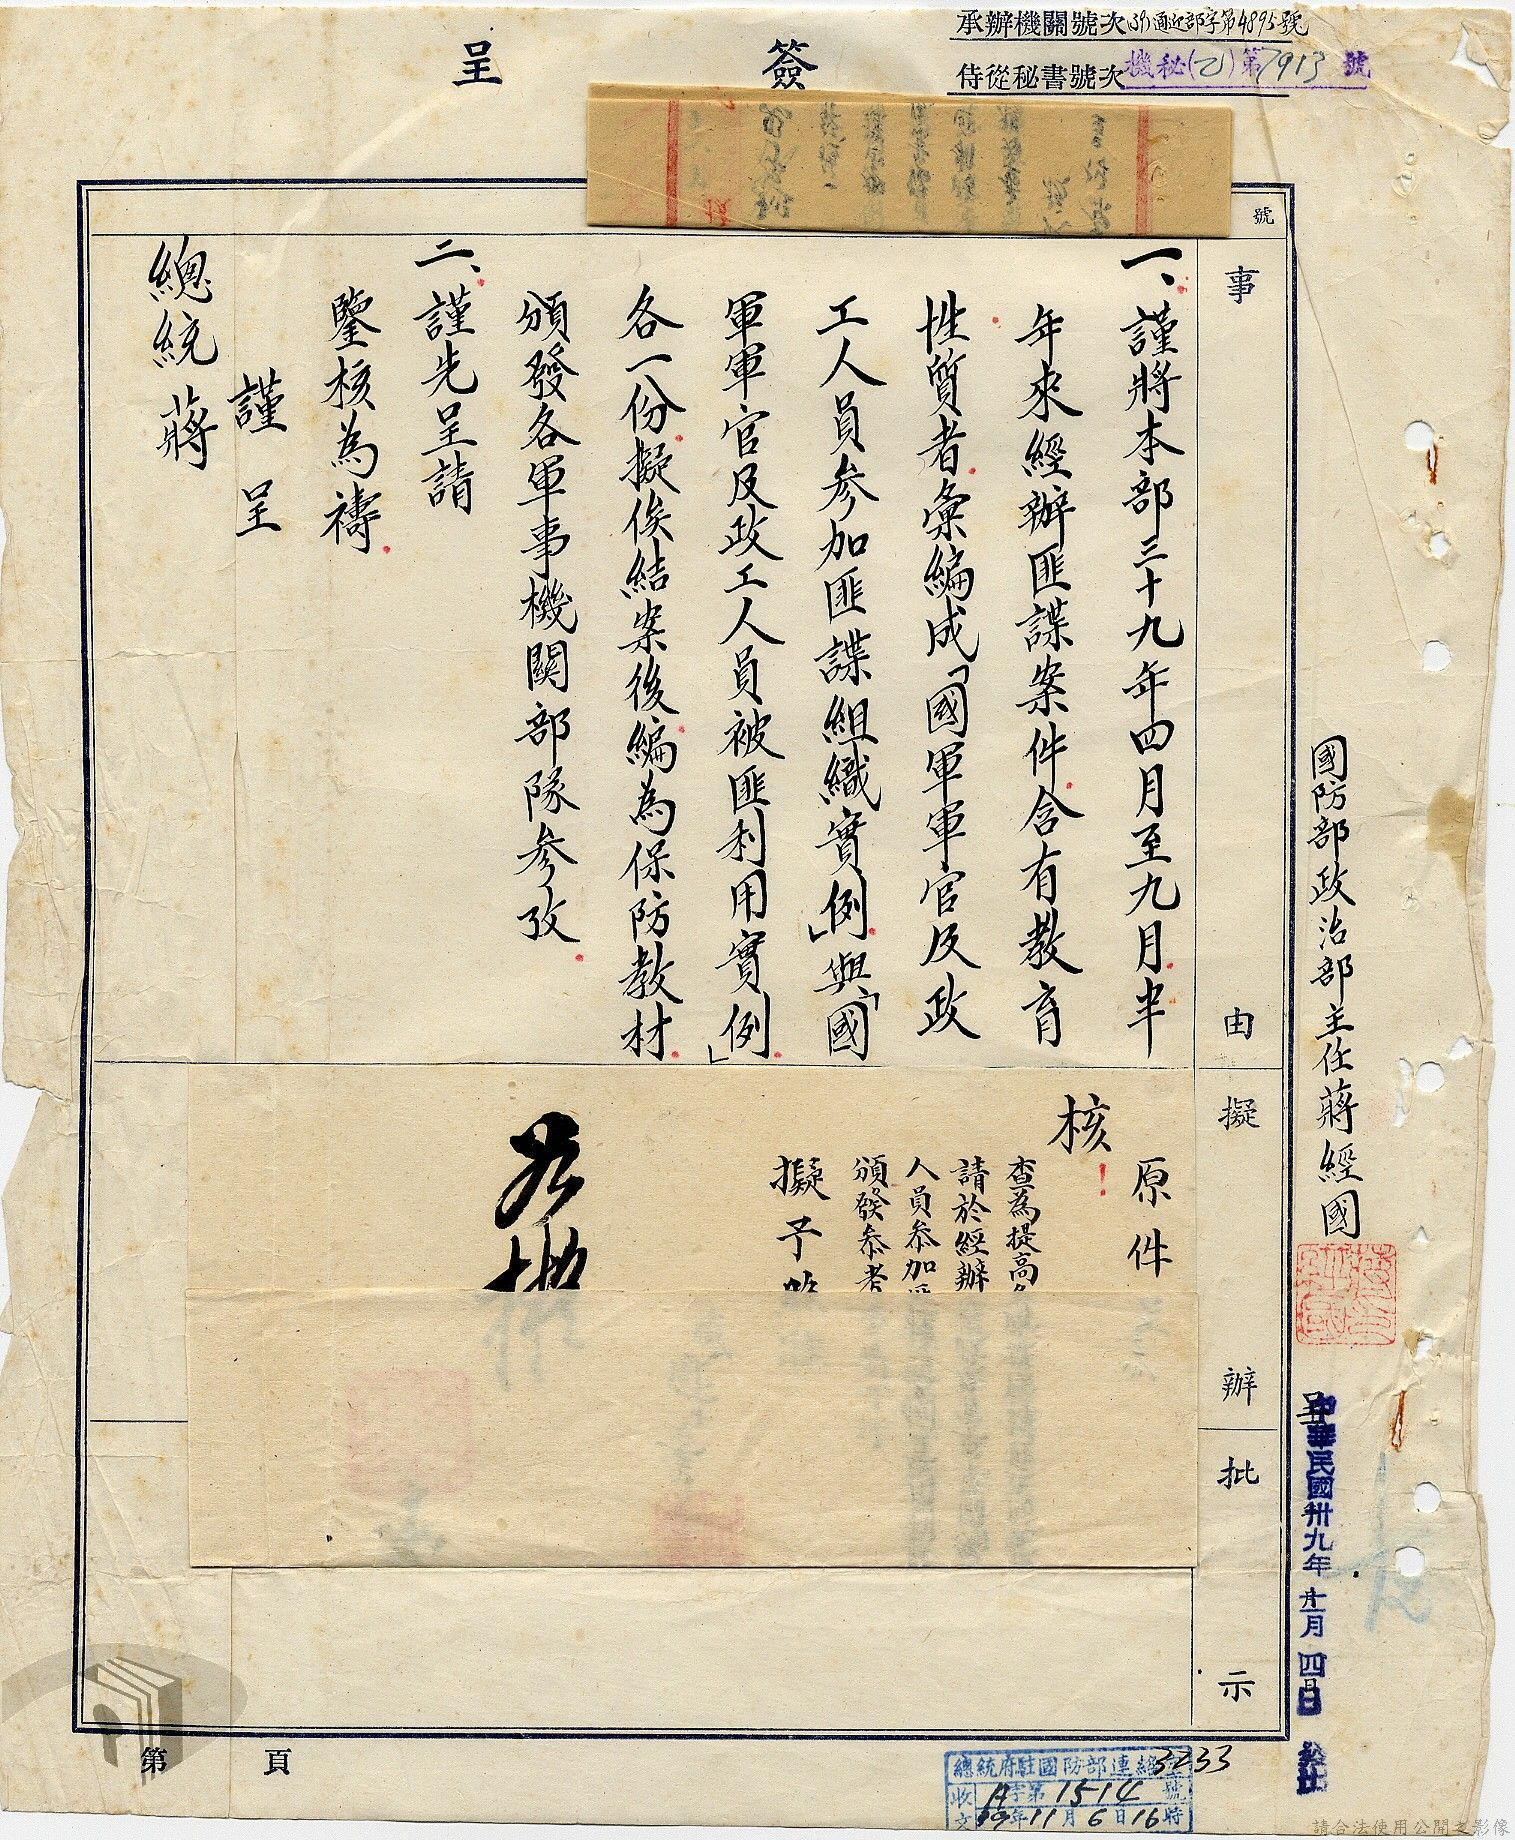 承辦機關號次(39)通迎部字第4895號
侍從秘書號次機秘(乙)第7913號
簽呈
號
事由
擬辦
批示
國防部政治部主任蔣經國
呈
中華民國卅九年十一月四日
一、謹將本部三十九年四月至九月半
年來經辦匪諜案件含有教育
性質者彙編成「國軍軍官及政
工人員參加匪諜組織實例」與「國
軍軍官及政工人員被匪利用實例」
各一份擬俟結案後編為保防教材
頒發各軍事機關部隊參攷
二、謹先呈請
鑒核為禱
謹呈
總統蔣
原件
核
查為提高
請於經辦
人員參加
頒發參考
擬予
第頁
總統府駐國防部連絡室
3233
收文
A字第1514號
39年11月6日16時
請合法使用公開之影像